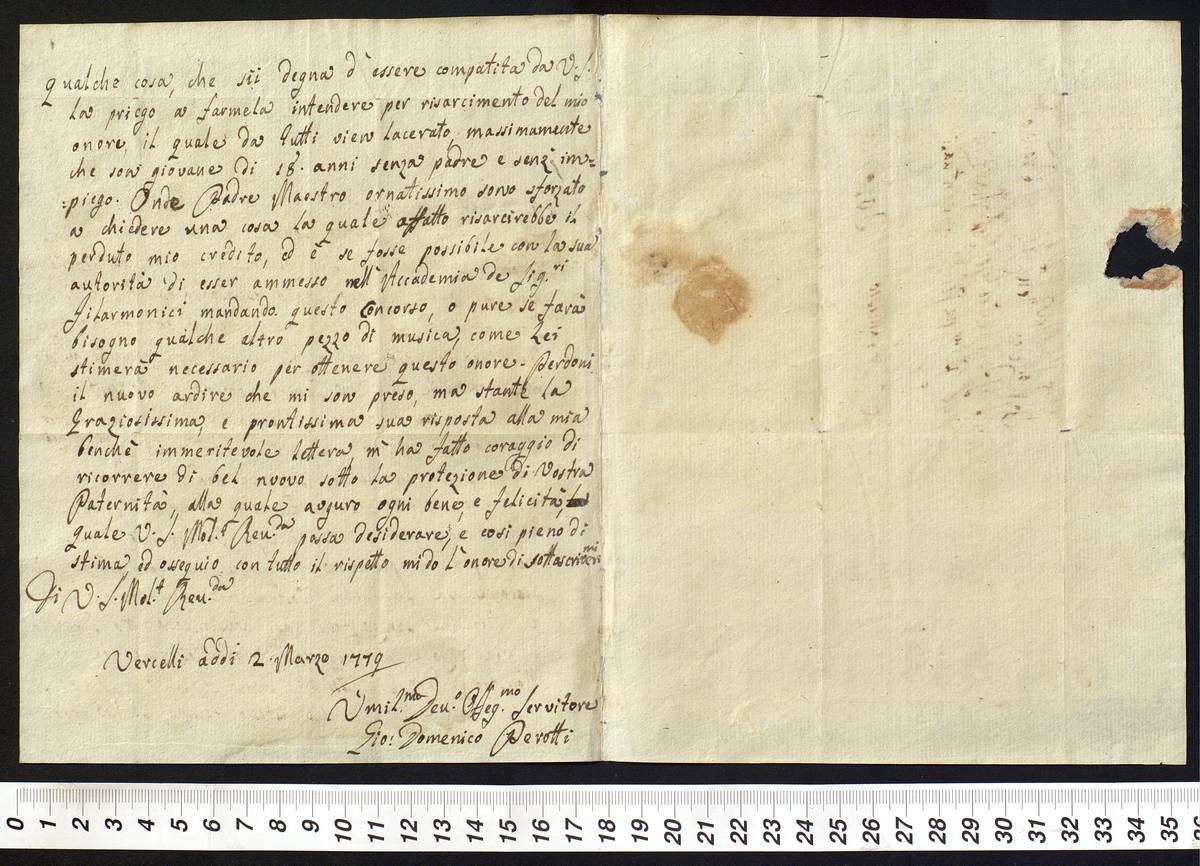 qualche cosa, che sii degna d'essere compatita da V. S.
la priego a farmela intendere per risarcimento del mio
onore, il quale da tutti vien lacerato, massimamente
che son giovane di 18. anni senza padre e senz' im=
=piego. Onde Padre Maestro ornatissimo sono sforzato
a chiedere una cosa la quale affatto risarcirebbe il
perduto mio credito, ed è se fosse possibile con la sua
autorità di esser ammesso nell' Accademia de Sig.ri
Filarmonici mandando questo Concorso, o pure se farà
bisogno qualche altro pezzo di musica, come Lei
stimerà necessario per ottenere questo onore. Perdoni
il nuovo ardire che mi son preso, ma stante la
Graziosissima, e prontissima sua risposta alla mia
benchè immeritevole lettera, m'ha fatto coraggio di
ricorrere di bel nuovo sotto la protezione di Vostra
Paternità, alla quale auguro ogni bene, e felicità,
quale V. S. Mol.t Reu.da possa desiderare, e così pieno di
stima, ed ossequio con tutto il rispetto mi do l'onore di sottoscrivermi
Di V. S. Mol.t Reu.da
Vercelli addi 2. Marzo 1779
Umil.mo Deu.o Osseq.mo Servitore
Gio: Domenico Perotti
0 1 2 3 4 5 6 7 8 9 10 11 12 13 14 15 16 17 18 19 20 21 22 23 24 25 26 27 28 29 30 31 32 33 34 35